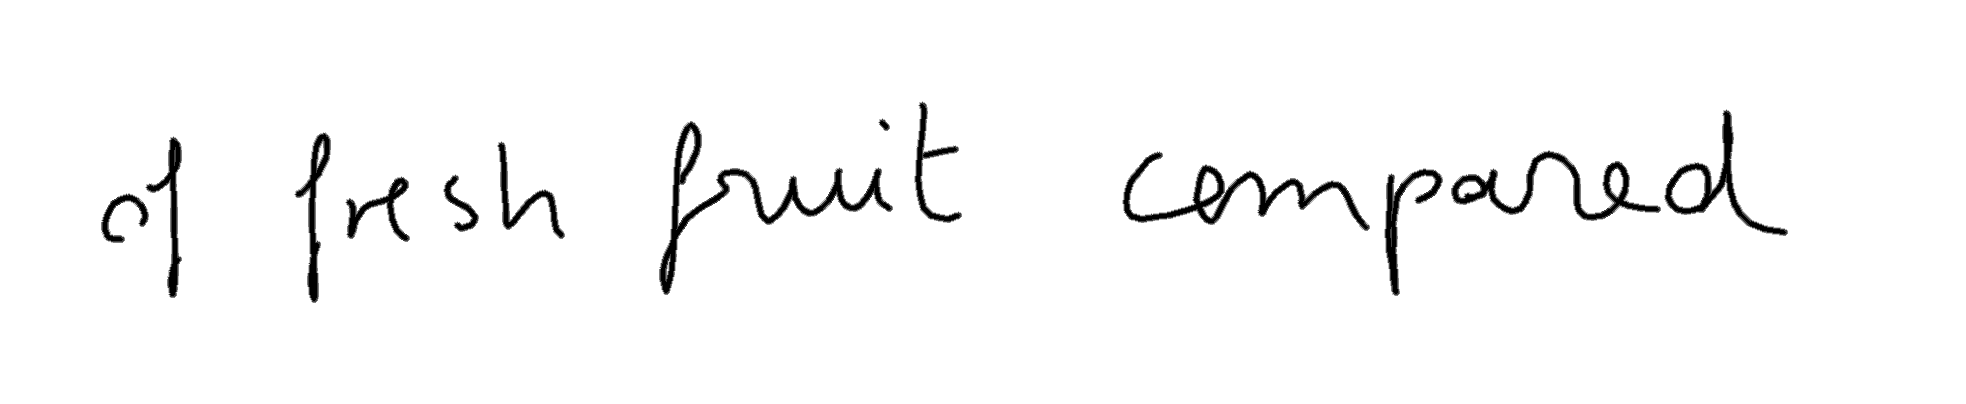 of fresh fruit compared